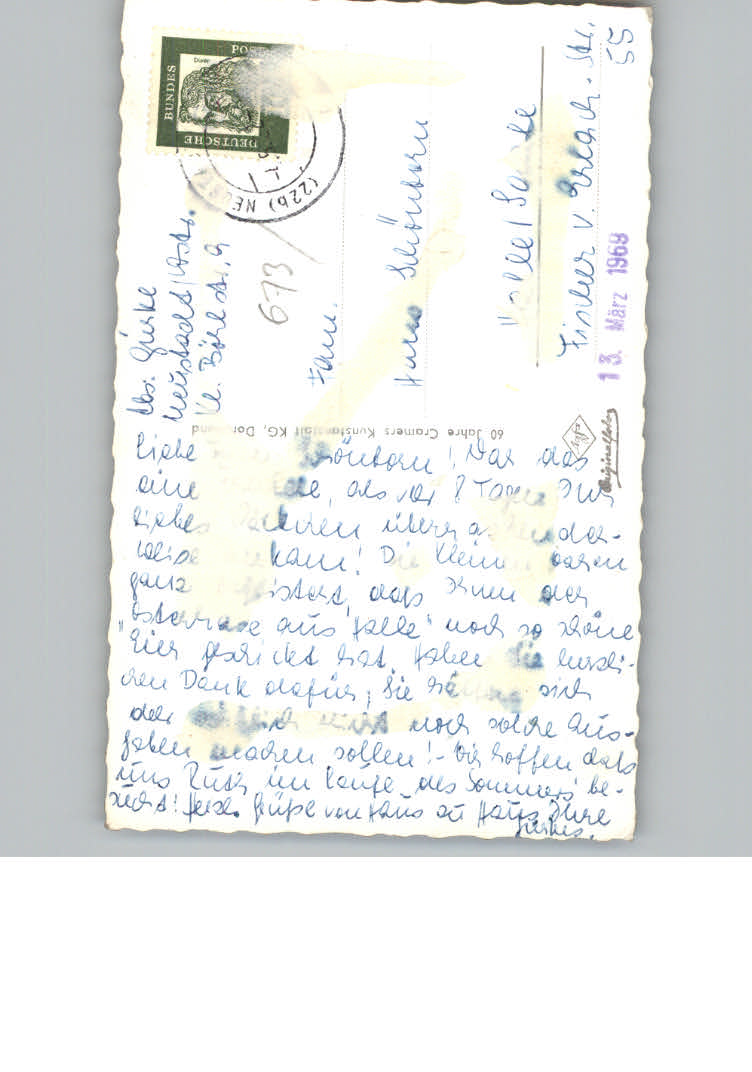 DEUTSCHE
BUNDES
POST
Dürer
(22b) NEUSTA
Abs. Gürke
Neustadt/Wstr.
Kl. Böhlstr. 9
673
Fam.
Hans Schönborn
Halle/Saale
Fischer v. Erlach-Str.
55
13. März 1969
60 Jahre Cramers Kunstanstalt KG, Dortmund
Agfa
Originalfoto
Liebe Schönborn! War das
eine , als vor 8 Tagen Ihr
liebes Päckchen überraschender-
weise ankam! Die Kleinen waren
ganz begeistert, daß Ihnen der
"Osterhase aus Halle" noch so schöne
Eier geschickt hat. Haben Sie herzli-
chen Dank dafür, Sie hätten sich
doch nicht noch solche Aus-
gaben machen sollen! - Wir hoffen daß
uns Ruth im Laufe des Sommers be-
sucht! Herzl. Grüße von Haus zu Haus Ihre
Gürkes.